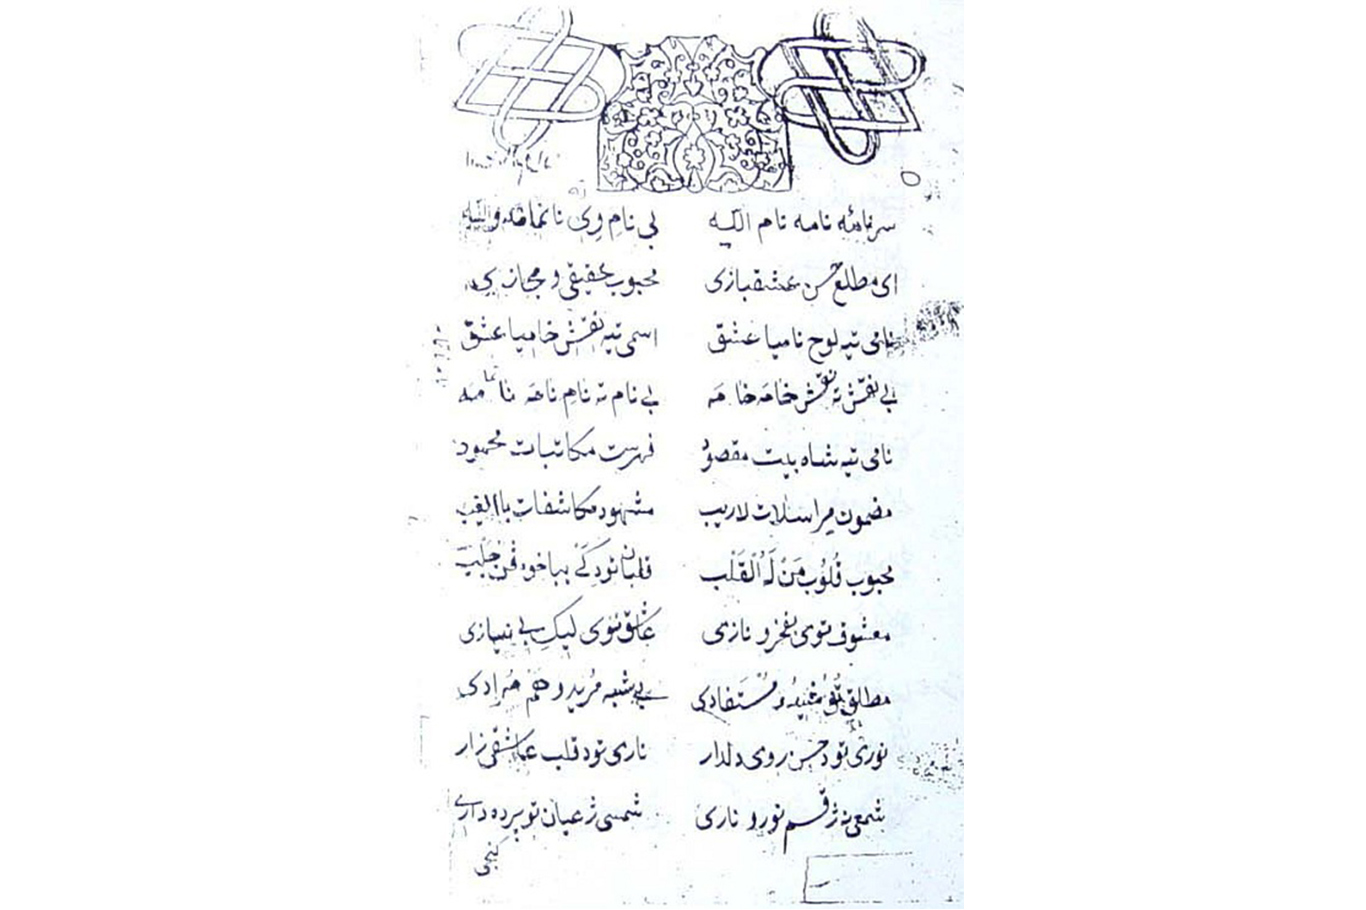 سرنامهٔ نامه نام الله بی نام وی ناتمامه والله
ای مطلع حسن عشقبازی محبوب حقیقی و مجازی
نامی تیه لوح نامیا عشق اسمی تیه نقش خامیا عشق
بی نقش ته نقش خامه خامه بی نام ته نام نامه ناتمامه
نامی تیه شاه بیت مقصود فهرست مکاتبات محمود
مضمون مراسلات لاریب مشهود مکاشفات بالغیب
محبوب قُلُوب مَنْ لَهُ الْقَلْب قلبان تودکی بباخوه فن جلب
معشوق توی بفخر و نازی عاشق توی لیک بی نیازی
مطلق تو مفید و مستفادی بی شبه مرید و هم مرادی
نوری تو د حسن روی دلدار ناری تو د قلب عاشقی زار
شمعی نه ژ قسم نور و ناری شمسی ژ عیان تو پرده داری
کنجی